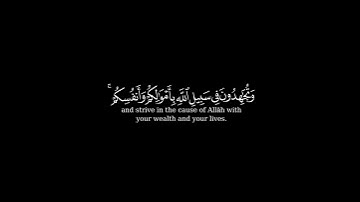 وَتُجَٰهِدُونَ فِي سَبِيلِ ٱللَّهِ بِأَمۡوَٰلِكُمۡ وَأَنفُسِكُمۡۚ
and strive in the cause of Allāh with
your wealth and your lives.